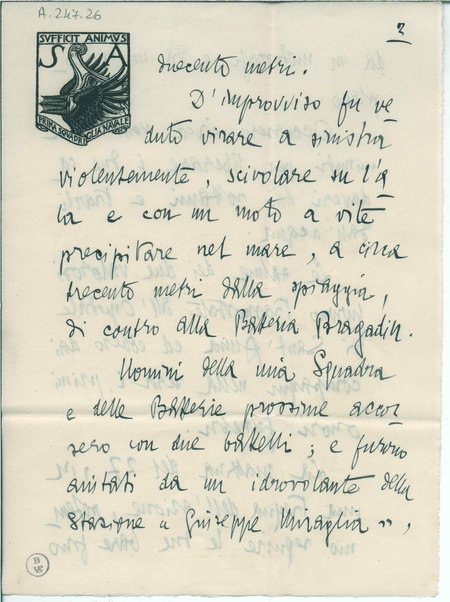 A. 247.26
2
SVFFICIT ANIMVS
S A
PRIMA SQVADRIGLIA NAVALE
duecento metri.
D'improvviso fu ve
duto virare a sinistra
violentemente, scivolare su l'a
la e con un moto a vite
precipitare nel mare, a circa
trecento metri dalla spiaggia,
di contro alla Batteria Bragadin.
Uomini della mia Squadra
e delle Batterie prossime accor
sero con due battelli; e furono
aiutati da un idrovolante della
Stazione "Giuseppe Miraglia",